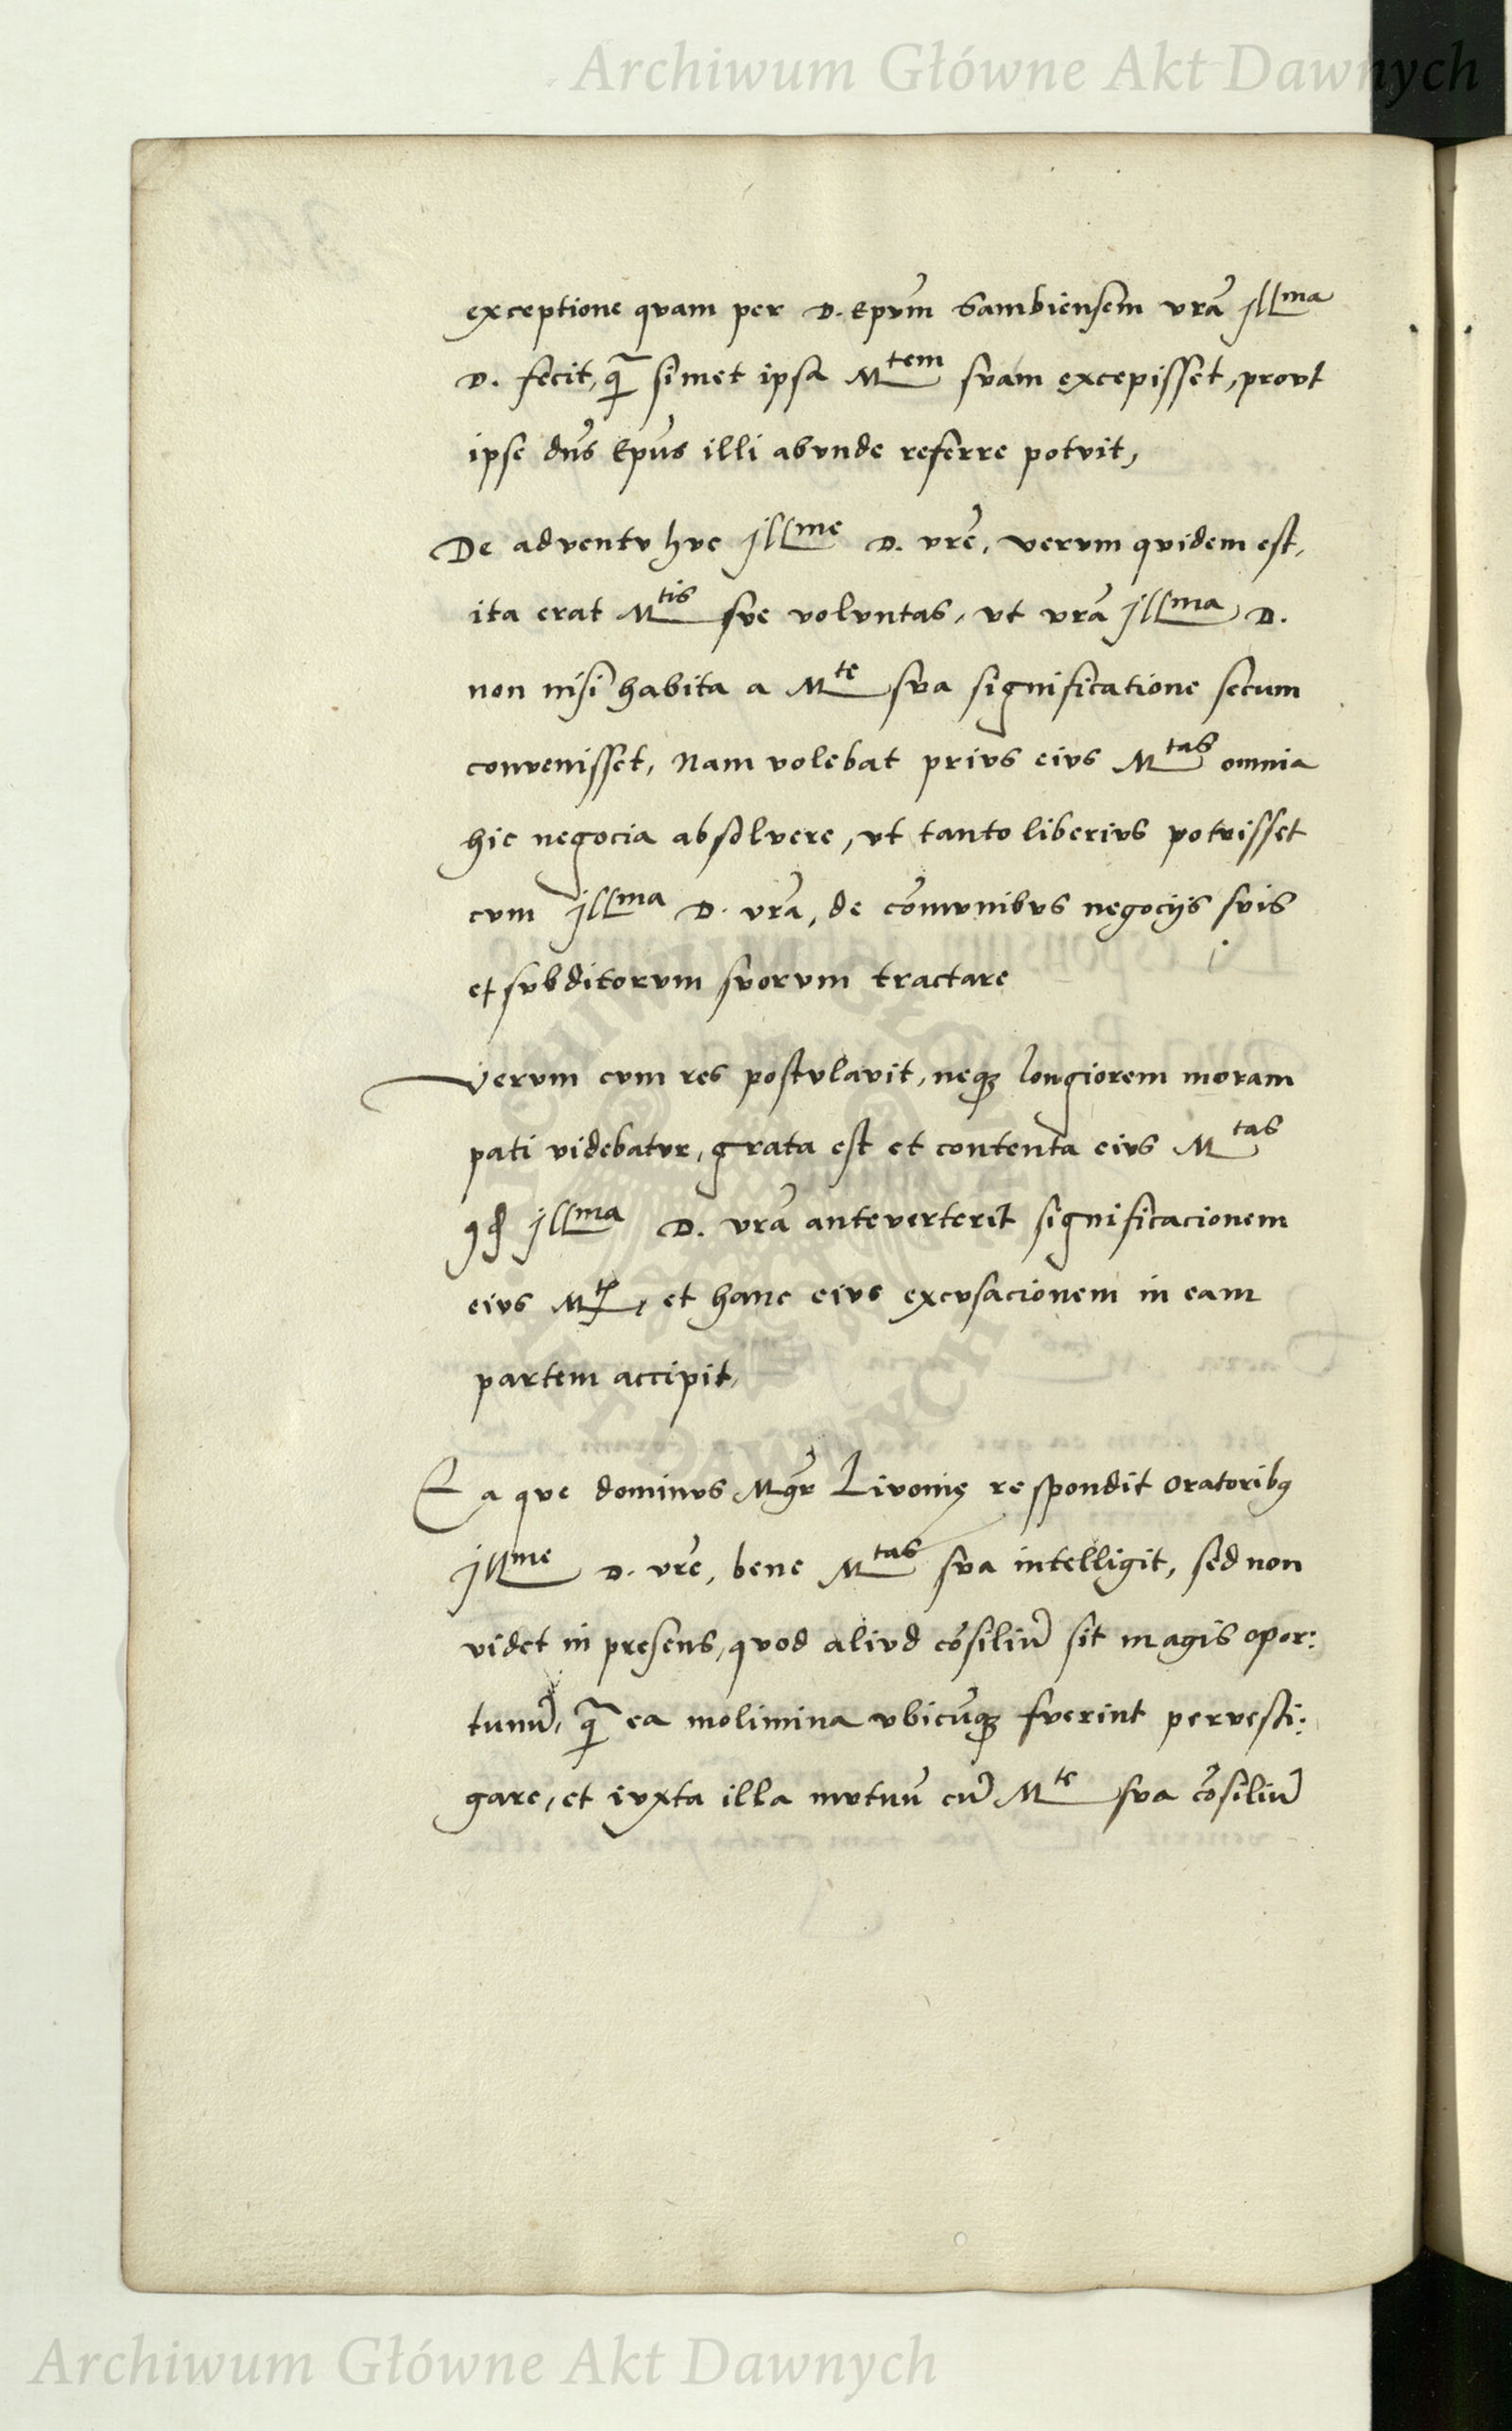 Archiwum Główne Akt Dawnych
exceptione quam per D. Epum̃ Sambiensem vrã Jllma
D. fecit, q̃ simet ipsa Mtem suam excepisset, prout
ipse dñs Epũs illi abunde referre potuit,
De aduentu huc Jllme D. vrẽ, verum quidem est,
ita erat Mtis sue voluntas, ut vrã Jllma D.
non nisi habita a Mte sua significatione secum
conuenisset, Nam volebat prius eius Mtas omnia
hic negocia absoluere, ut tanto liberius potuisset
cum Jllma D. vrã, de cõmunibus negocijs suis
et subditorum suorum tractare
Verum cum res postulauit, neqꝫ longiorem moram
pati videbatur, grata est et contenta eius Mtas
qd Jllma D. vrã anteuerterit significacionem
eius Mtis, et hanc eius excusacionem in eam
partem accipit,
Ea que dominus Mgr̃ Livonię respondit oratoribꝯ
Jllme D. vrẽ, bene Mtas sua intelligit, sed non
videt in presens, quod aliud cõsiliũ sit magis opor:
tunũ, q̃ ea molimina ubicũqꝫ fuerint peruesti:
gare, et iuxta illa mutuũ cũ Mte sua cõsiliũ
Archiwum Główne Akt Dawnych